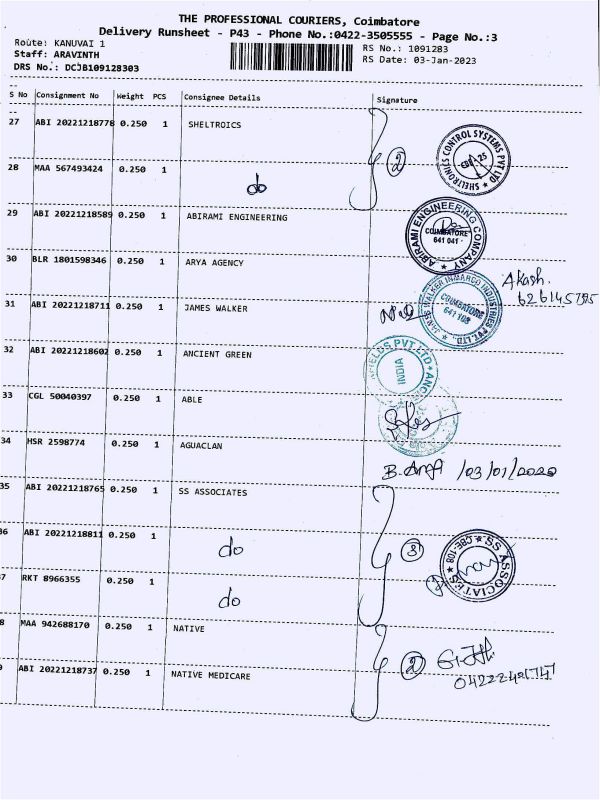 THE PROFESSIONAL COURIERS, Coimbatore
Delivery Runsheet - P43 - Phone No.:0422-3505555 - Page No.:3
Route: KANUVAI 1
Staff: ARAVINTH
DRS No.: DCJB109128303
RS No.: 1091283
RS Date: 03-Jan-2023
S No Consignment No Weight PCS Consignee Details Signature
27 ABI 20221218778 0.250 1 SHELTROICS
2
SHELTRONICS CONTROL SYSTEMS PVT LTD
28 MAA 567493424 0.250 1 do
29 ABI 20221218589 0.250 1 ABIRAMI ENGINEERING
ABIRAMI ENGINEERING COMPANY COIMBATORE 641 041
30 BLR 1801598346 0.250 1 ARYA AGENCY
Akash.
31 ABI 20221218711 0.250 1 JAMES WALKER
JAMES WALKER INMARCO INDUSTRIES PVT.LTD., COIMBATORE 641 108
32 ABI 20221218602 0.250 1 ANCIENT GREEN
PVT LTD INDIA
33 CGL 50040397 0.250 1 ABLE
34 HSR 2598774 0.250 1 AGUACLAN
/03/01/2020
35 ABI 20221218765 0.250 1 SS ASSOCIATES
36 ABI 20221218811 0.250 1 do
3
SS ASSOCIATES CBE-108
7 RKT 8966355 0.250 1 do
8 MAA 942688170 0.250 1 NATIVE
2
9 ABI 20221218737 0.250 1 NATIVE MEDICARE